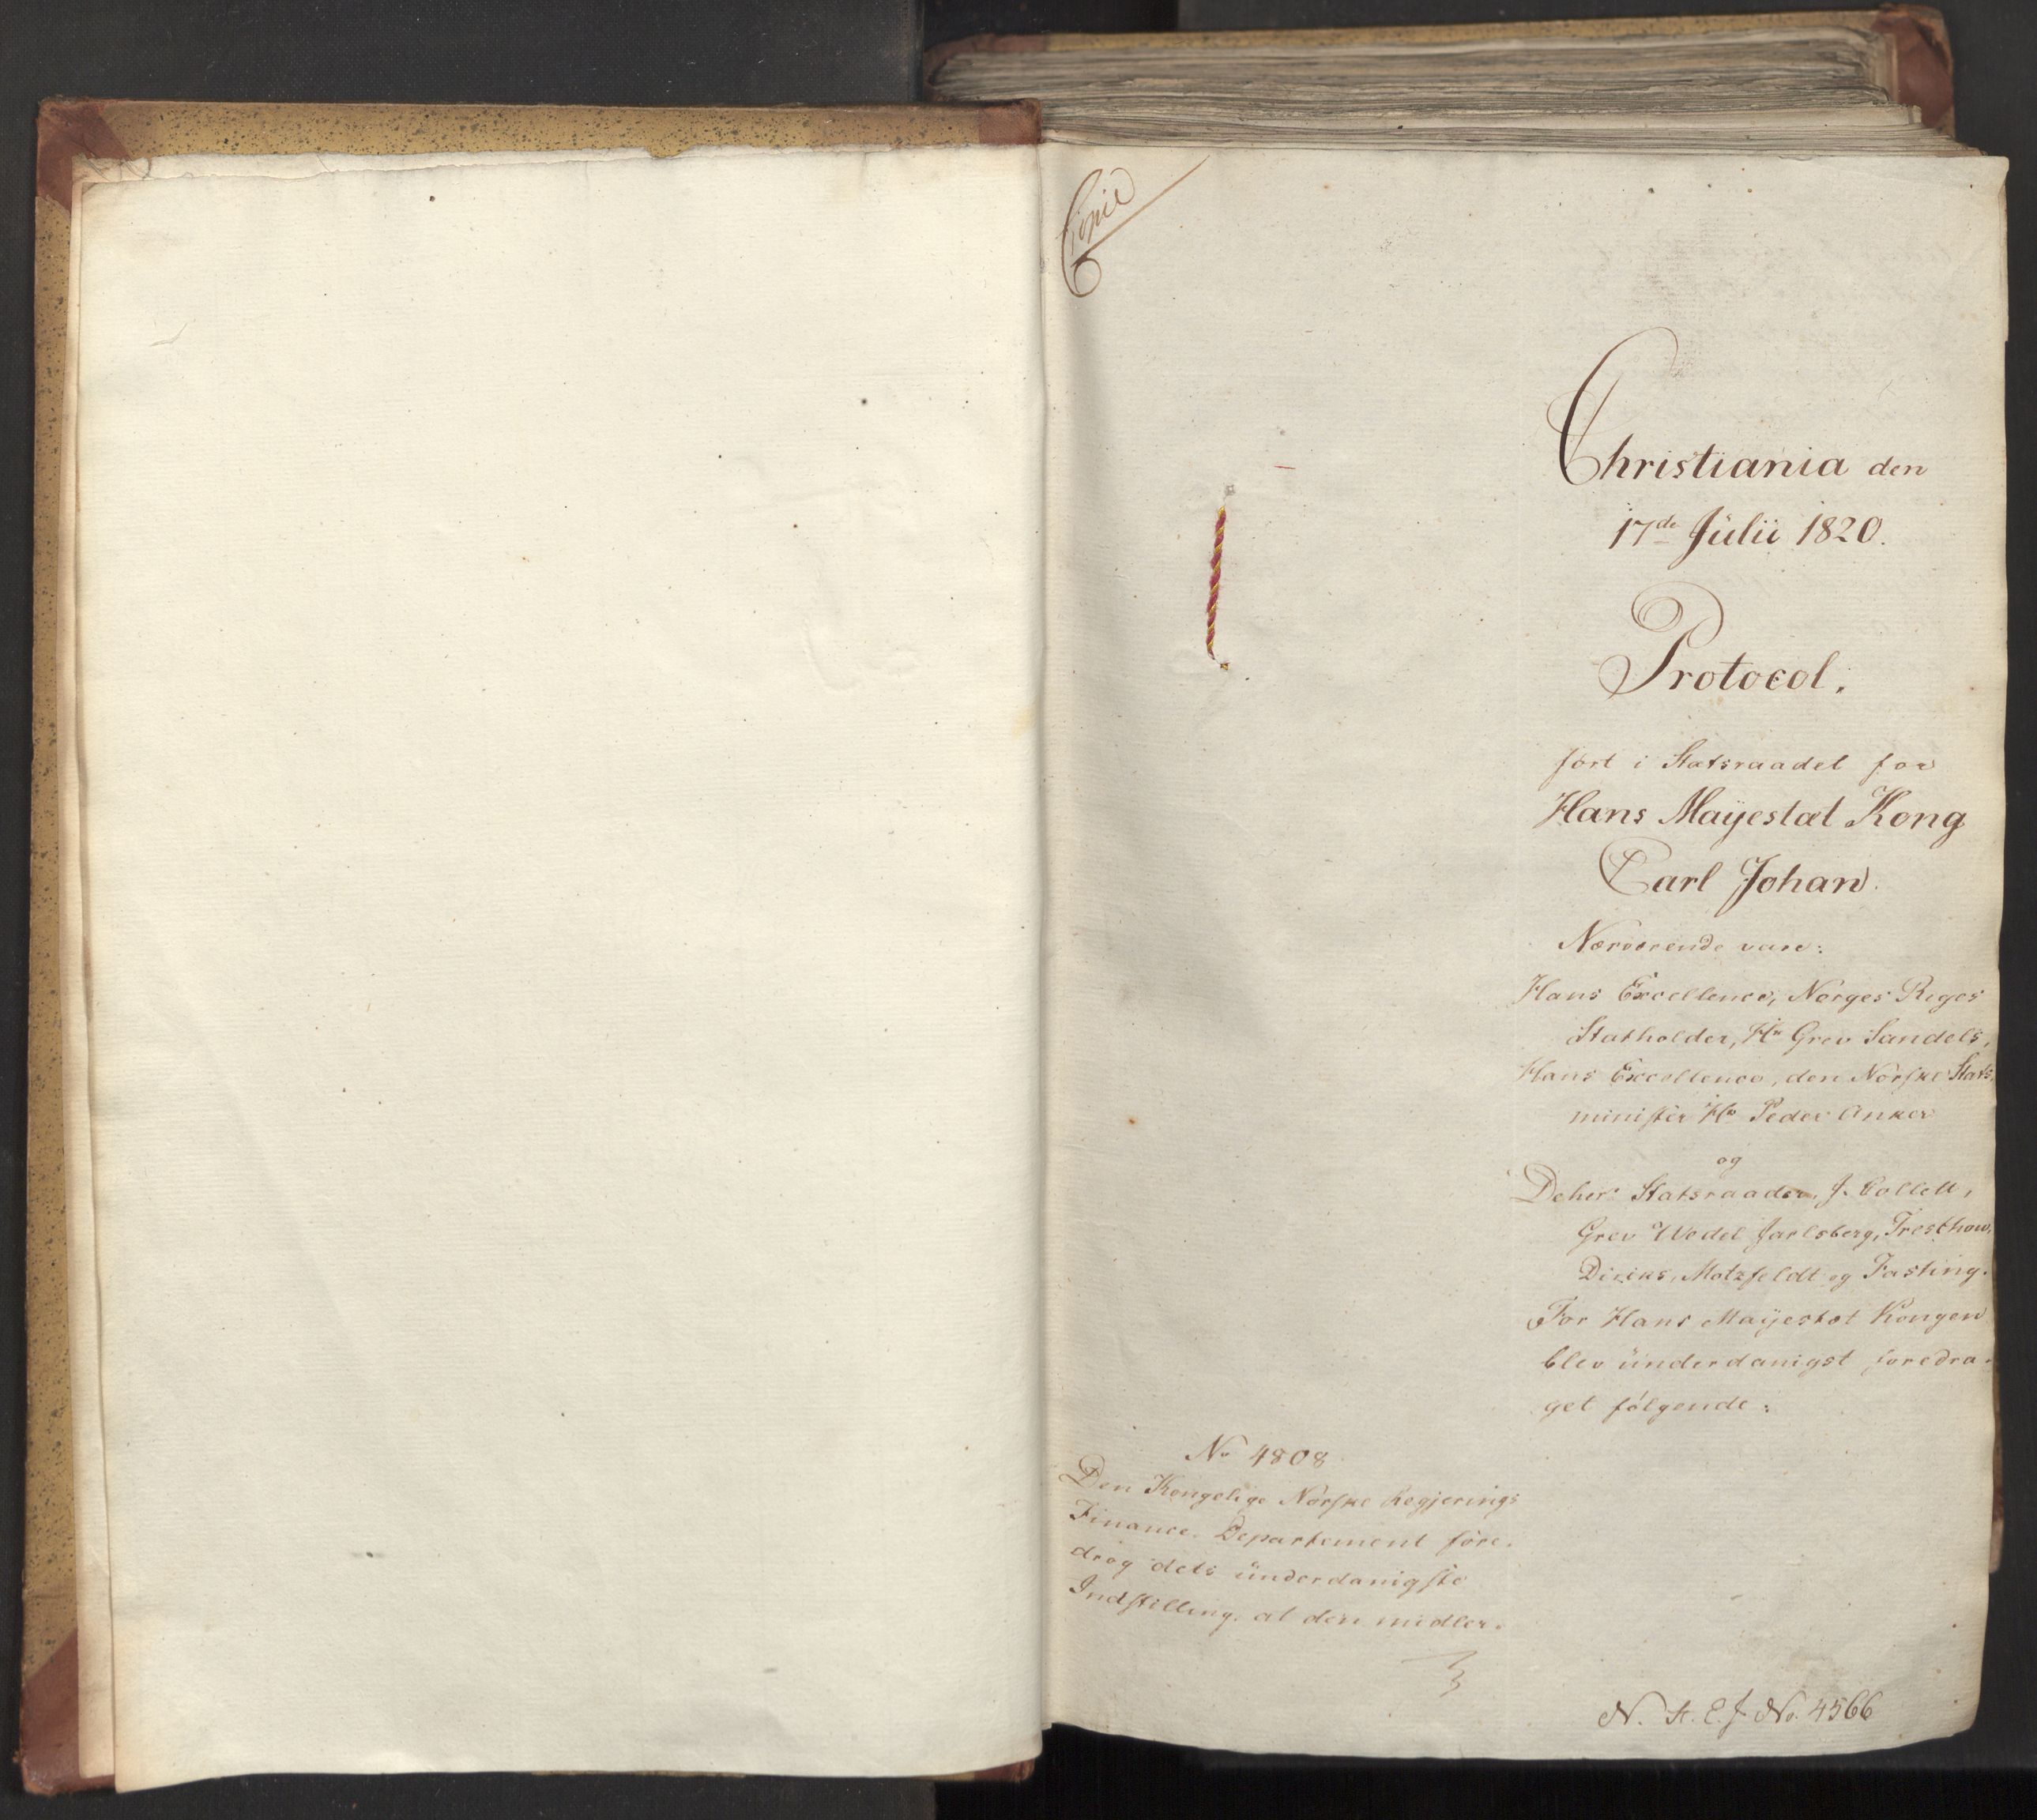 Copie
Christiania den
17de Julii 1820.
Protocol,
ført i Statsraadet for
Hans Mayestæt Kong
Carl Johan.
Nærværende vare:
Hans Excellence, Norges Riges
Statholder, Hr Grev Sandels,
Hans Excellence, den Norske Stats-
minister Hr Peder Anker
og
DeHerr Statsraader, J. Collett,
Grev Wedel Jarlsberg, Treschow,
Diriks, Motzfeldt og Fasting.
For Hans Mayestæt Kongen
blev underdanigst foredra-
get følgende:
No 4808
Den Kongelige Norske Regjerings
Finance-Departement fore-
drog dets underdanigste
Indstilling, at den midler-
N. St. E. J. No. 4566